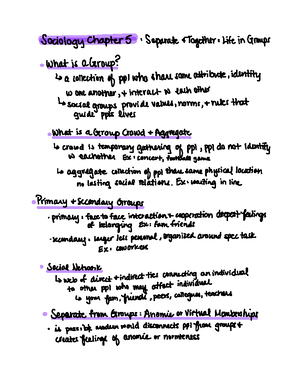 Sociology Chapter 5 : Separate & Together: Life in Groups
• What is a Group?
↳ a collection of ppl who share some attribute, identity
w one another, & interact w each other
↳ social groups provide values, norms, & rules that
guide ppls lives
• What is a Group Crowd & Aggregate
↳ crowd is temporary gathering of ppl, ppl do not identify
w eachother Ex: concert, football game
↳ aggregate collection of ppl share same physical location
no lasting social relations. Ex: waiting in line
• Primary & Secondary Groups
• primary: face to face interaction & cooperation deepest feelings
of belonging Ex: fam friends
• secondary: larger less personal, organized around spec task
Ex: coworkers
• Social Network
↳ web of direct & indirect ties connecting an individual
to other ppl who may affect individual
↳ your fam, friends, peers, collegues, teachers
• Separate from Groups: Anomie or Virtual Memberships
• is modern world disconnects ppl from groups &
creates feelings of anomie or normless